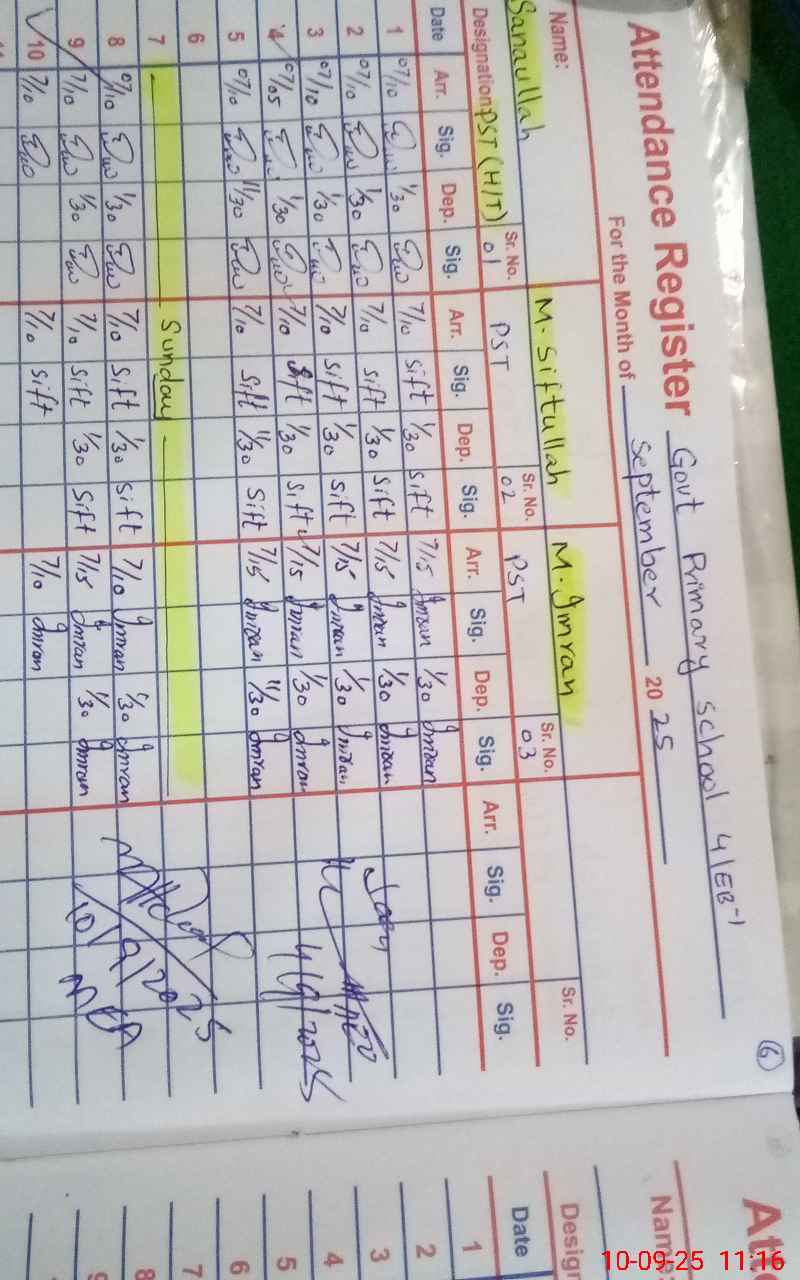 Attendance Register Govt Primary school 4/EB-1
For the Month of September 2025
6
Name: Sanaullah M. Siftullah M. Imran
Sr. No. 01 Sr. No. 02 Sr. No. 03 Sr. No.
Designation PST (H/T) PST PST
Date Arr. Sig. Dep. Sig. Arr. Sig. Dep. Sig. Arr. Sig. Dep. Sig. Arr. Sig. Dep. Sig.
1 07/10 1/30 7/10 sift 1/30 sift 7/15 Imran 1/30 Imran
2 07/10 1/30 7/10 sift 1/30 sift 7/15 Imran 1/30 Imran
3 07/10 1/30 7/10 sift 1/30 sift 7/15 Imran 1/30 Imran
4 07/05 1/30 7/10 sift 1/30 sift 7/15 Imran 1/30 Imran
4/9/2025
5 07/10 11/30 7/10 sift 11/30 sift 7/15 Imran 11/30 Imran
6
7 Sunday
8 07/10 1/30 7/10 sift 1/30 sift 7/10 Imran 1/30 Imran
9 7/10 1/30 7/10 sift 1/30 sift 7/15 Imran 1/30 Imran
10/9/2025
10 7/10 7/10 sift 7/10 Imran
11
Att
Name:
Design
Date
1
2
3
4
5
6
7
8
9
10-09-25 11:16